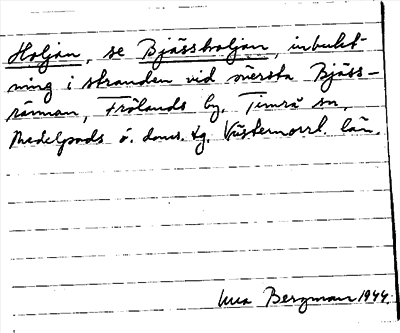 Holjan, se Bjässholjan, inbukt-
ning i stranden vid översta Bjäss-
rännan, Frölands by, Timrå sn,
Medelpads ö. doms. tg. Västernorrl. län.
Unа Bergman 1944.